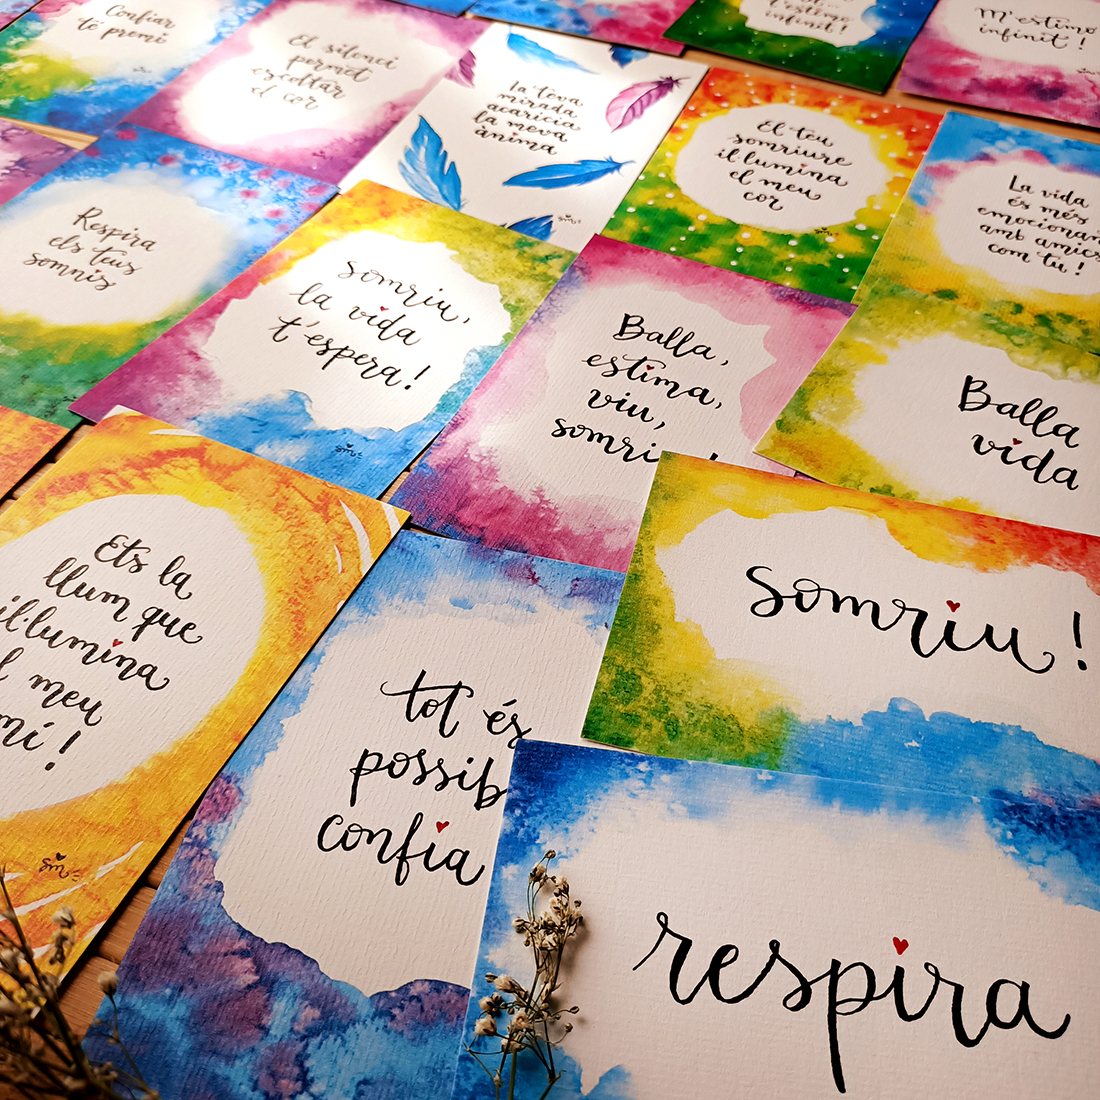 Confiar
té premi
El silenci
permet
escoltar
el cor
la teva
mirada
acaricia
la meva
ànima
t'estimo
infinit!
M'estimo
infinit!
Respira
els teus
somnis
somriu,
la vida
t'espera!
El teu
somriure
il·lumina
el meu
cor
La vida
és més
emocionan
amb amics
com tu!
Balla,
estima,
viu,
somri
Balla
vida
Ets la
llum que
il·lumina
meu
mí!
sm
tot és
possib
confia
somriu!
respira